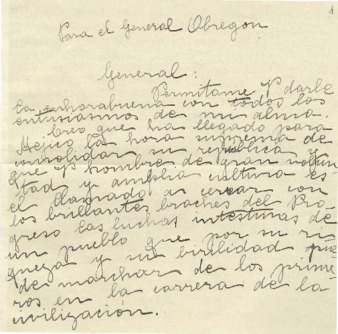 1
Para el General Obregon
General:
Permítame Vd darle
la enhorabuena con todos los
entusiasmos de mi alma.
Creo que ha llegado para
Mejico la hora suprema de
consolidar su republica y
que Vd hombre de gran volun
tad y amplia cultura es
el llamado a cerrar con
los brillantes broches del Pro
greso las luchas intestinas de
un pueblo que por su ri
queza y su virilidad pue
de marchar de los prime
ros en la carrera de la
civilización.